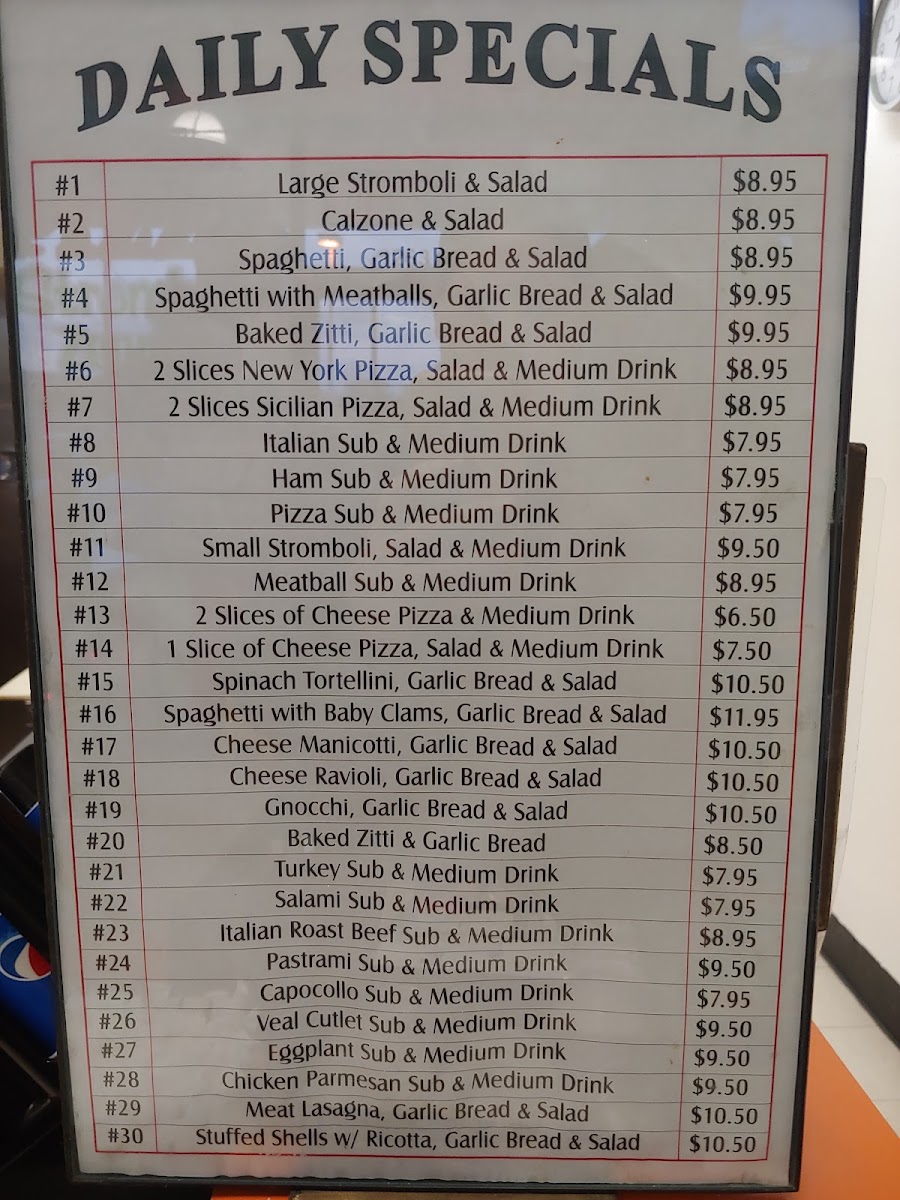 DAILY SPECIALS
#1 Large Stromboli & Salad $8.95
#2 Calzone & Salad $8.95
#3 Spaghetti, Garlic Bread & Salad $8.95
#4 Spaghetti with Meatballs, Garlic Bread & Salad $9.95
#5 Baked Zitti, Garlic Bread & Salad $9.95
#6 2 Slices New York Pizza, Salad & Medium Drink $8.95
#7 2 Slices Sicilian Pizza, Salad & Medium Drink $8.95
#8 Italian Sub & Medium Drink $7.95
#9 Ham Sub & Medium Drink $7.95
#10 Pizza Sub & Medium Drink $7.95
#11 Small Stromboli, Salad & Medium Drink $9.50
#12 Meatball Sub & Medium Drink $8.95
#13 2 Slices of Cheese Pizza & Medium Drink $6.50
#14 1 Slice of Cheese Pizza, Salad & Medium Drink $7.50
#15 Spinach Tortellini, Garlic Bread & Salad $10.50
#16 Spaghetti with Baby Clams, Garlic Bread & Salad $11.95
#17 Cheese Manicotti, Garlic Bread & Salad $10.50
#18 Cheese Ravioli, Garlic Bread & Salad $10.50
#19 Gnocchi, Garlic Bread & Salad $10.50
#20 Baked Zitti & Garlic Bread $8.50
#21 Turkey Sub & Medium Drink $7.95
#22 Salami Sub & Medium Drink $7.95
#23 Italian Roast Beef Sub & Medium Drink $8.95
#24 Pastrami Sub & Medium Drink $9.50
#25 Capocollo Sub & Medium Drink $7.95
#26 Veal Cutlet Sub & Medium Drink $9.50
#27 Eggplant Sub & Medium Drink $9.50
#28 Chicken Parmesan Sub & Medium Drink $9.50
#29 Meat Lasagna, Garlic Bread & Salad $10.50
#30 Stuffed Shells w/ Ricotta, Garlic Bread & Salad $10.50